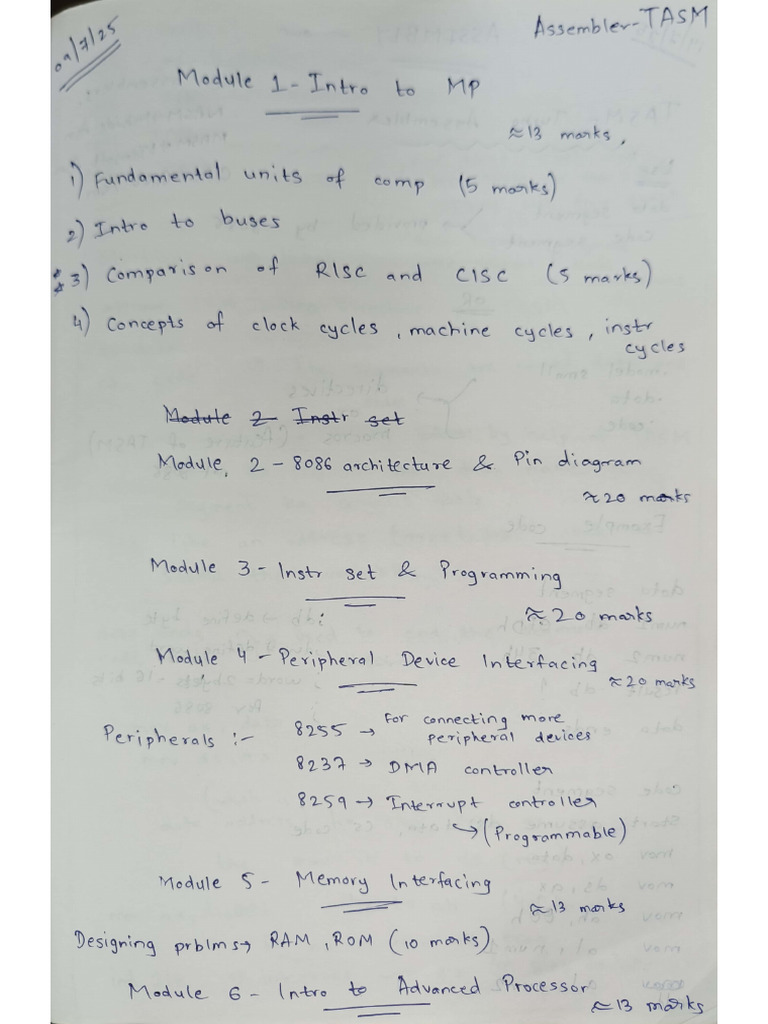 09/7/25
Assembler-TASM
Module 1 - Intro to MP
≈13 marks,
1) Fundamental units of comp (5 marks)
2) Intro to buses
** 3) Comparison of RISC and CISC (5 marks)
4) Concepts of clock cycles, machine cycles, instr
cycles
Module 2 Instr set
Module 2 - 8086 architecture & Pin diagram
≈20 marks
Module 3 - Instr set & Programming
≈20 marks
Module 4 - Peripheral Device Interfacing
≈20 marks
Peripherals :- 8255 → for connecting more
peripheral devices
8237 → DMA controller
8259 → Interrupt controller
↳ (Programmable)
Module 5 - Memory Interfacing
≈13 marks
Designing prblms → RAM, ROM (10 marks)
Module 6 - Intro to Advanced Processor
≈13 marks